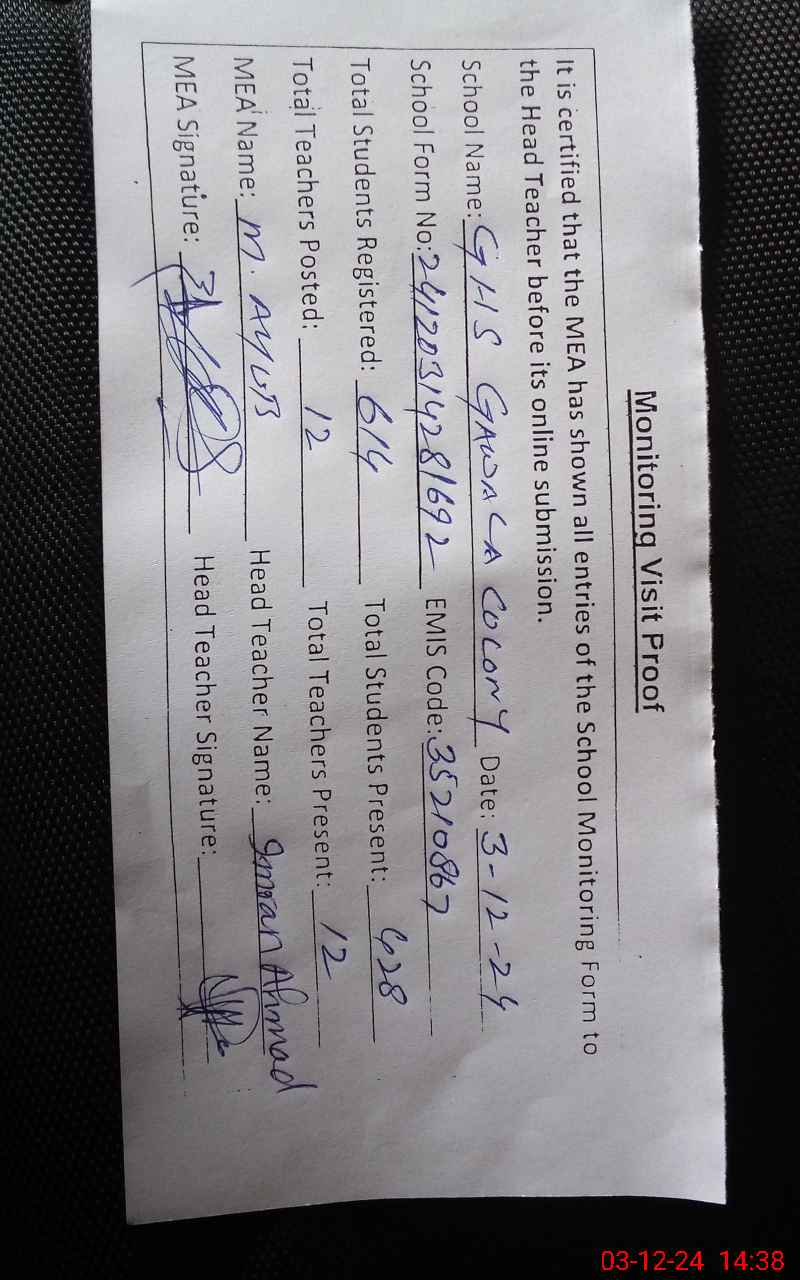 Monitoring Visit Proof
It is certified that the MEA has shown all entries of the School Monitoring Form to
the Head Teacher before its online submission.
School Name: GHS GAWALA COLONY Date: 3-12-24
School Form No: 24120314281692 EMIS Code: 35210867
Total Students Registered: 614 Total Students Present: 428
Total Teachers Posted: 12 Total Teachers Present: 12
MEA Name: M. AYUB Head Teacher Name: Imran Ahmad
MEA Signature: Head Teacher Signature:
03-12-24 14:38